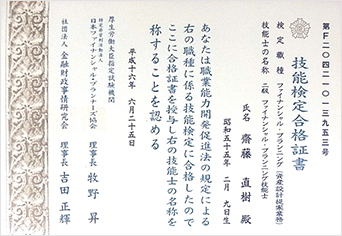 第F二〇四二一〇一三九五三号
技能検定合格証書
検定職種 ファイナンシャル・プランニング(資産設計提案業務)
技能士の名称 二級 ファイナンシャル・プランニング技能士
氏名 齋藤 直樹 殿
昭和五十五年 二月 九日生
あなたは職業能力開発促進法の規定による
右の職種に係る技能検定に合格したので
ここに合格証書を授与し右の技能士の名称を
称することを認める
平成十六年 六月二十五日
厚生労働大臣指定試験機関
特定非営利活動法人
日本ファイナンシャル・プランナーズ協会 理事長 牧野 昇
社団法人 金融財政事情研究会 理事長 吉田 正輝